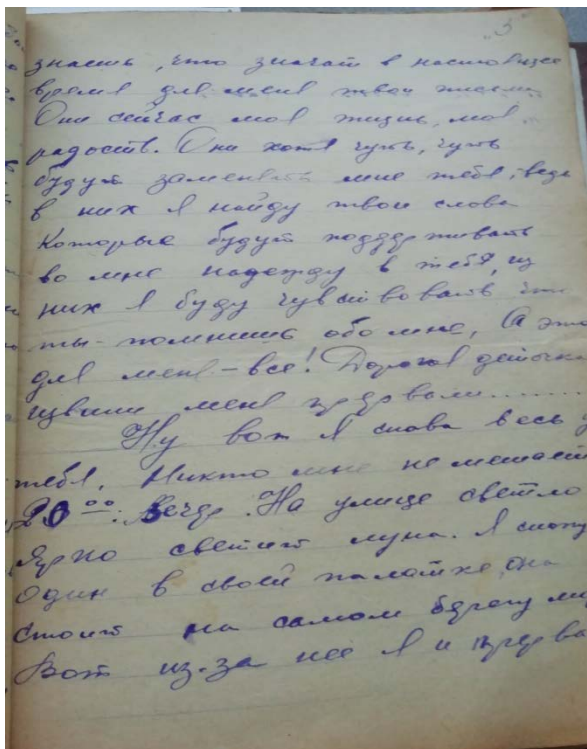 „3“
знаешь, что значат в настоящее
время для меня твои письма
Они сейчас моя жизнь, моя
радость. Они хотя чуть, чуть
будут заменять мне тебя, ведь
в них я найду твои слова
которые будут поддерживать
во мне надежду в тебя, из
них я буду чувствовать что
ты помнишь обо мне, А это
для меня – все! Дорогая деточка
извини меня прервали.......
Ну вот я снова весь у
тебя. Никто мне не мешает
20 00: вечер. На улице светло
Ярко светит луна. Я сижу
один в своей палатке, она
стоит на самом берегу
Вот из-за нее я и прерва